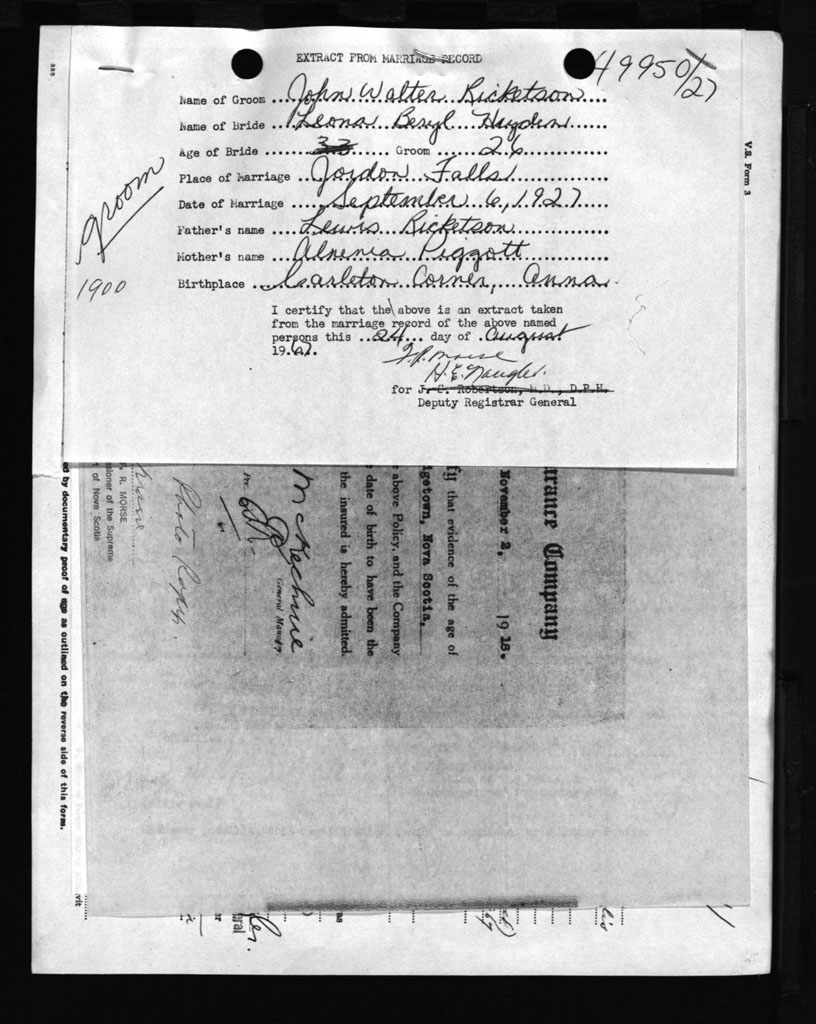 EXTRACT FROM MARRIAGE RECORD
49950/27
Name of Groom ...John Walter Ricketson....
Name of Bride ...Leona Beryl Hayden.....
Age of Bride ........33...... Groom ......26.........
Place of Marriage ...Jordon Falls...............
Date of Marriage ......September 6, 1927....
Father's name ...Lewis Ricketson..............
Mother's name ...Almenia Piggott............
Birthplace ..Carleton Corner, Anna.
groom
1900
I certify that the above is an extract taken
from the marriage record of the above named
persons this ..24... day of .August
1967.
F.R. Morse
H.E. Naugler.
for J. S. Robertson, M.D., D.P.H.
Deputy Registrar General
V.S. Form 3
urance Company
November 2, 1918.
fy that evidence of the age of
dgetown, Nova Scotia,
e above Policy, and the Company
e date of birth to have been the
the insured is hereby admitted.
McKechnie
General Manager.
Photo Copy.
. R. MORSE
sioner of the Supreme
t of Nova Scotia
ed by documentary proof of age as outlined on the reverse side of this form.